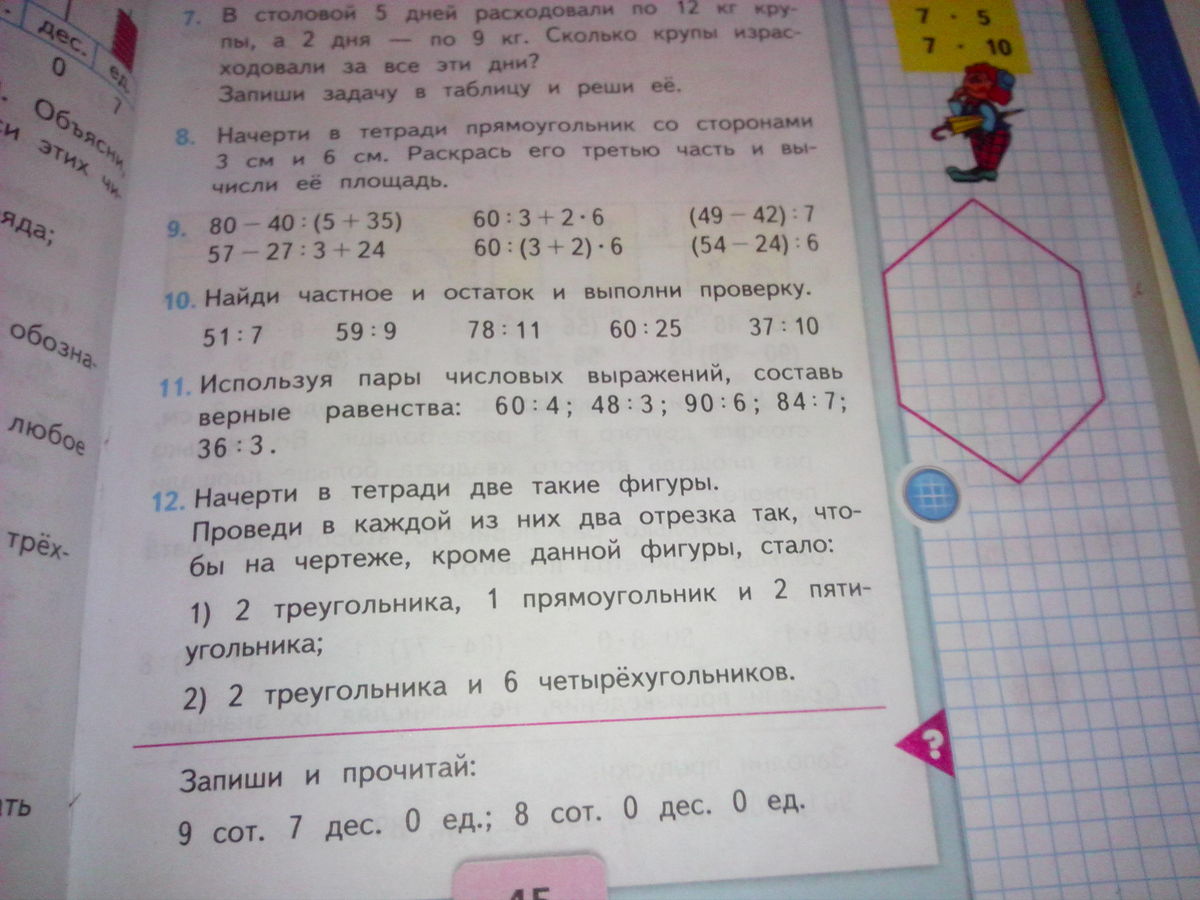 дес.
ед.
0
7
Объясни,
этих
яда;
обозна-
любое
трёх-
7 · 5
7 · 10
7. В столовой 5 дней расходовали по 12 кг кру-
пы, а 2 дня — по 9 кг. Сколько крупы израс-
ходовали за все эти дни?
Запиши задачу в таблицу и реши её.
8. Начерти в тетради прямоугольник со сторонами
3 см и 6 см. Раскрась его третью часть и вы-
числи её площадь.
9. 80 − 40 : (5 + 35) 60 : 3 + 2 · 6 (49 − 42) : 7
57 − 27 : 3 + 24 60 : (3 + 2) · 6 (54 − 24) : 6
10. Найди частное и остаток и выполни проверку.
51 : 7 59 : 9 78 : 11 60 : 25 37 : 10
11. Используя пары числовых выражений, составь
верные равенства: 60 : 4; 48 : 3; 90 : 6; 84 : 7;
36 : 3.
12. Начерти в тетради две такие фигуры.
Проведи в каждой из них два отрезка так, что-
бы на чертеже, кроме данной фигуры, стало:
1) 2 треугольника, 1 прямоугольник и 2 пяти-
угольника;
2) 2 треугольника и 6 четырёхугольников.
?
Запиши и прочитай:
9 сот. 7 дес. 0 ед.; 8 сот. 0 дес. 0 ед.
45